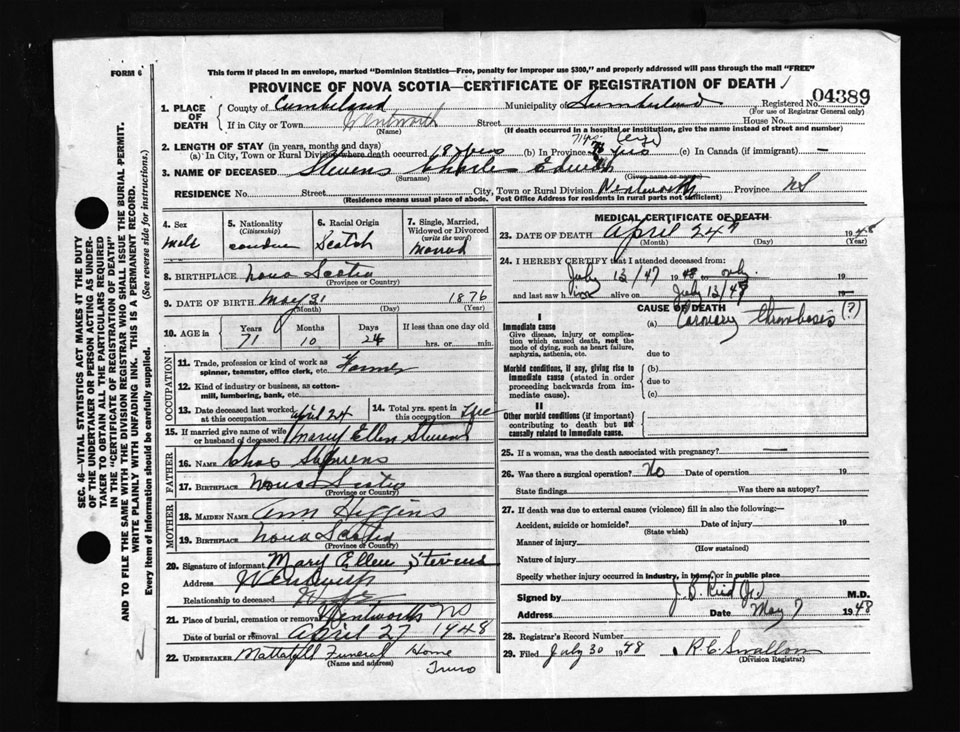 FORM 6
This form if placed in an envelope, marked "Dominion Statistics—Free, penalty for improper use $300," and properly addressed will pass through the mail "FREE"
PROVINCE OF NOVA SCOTIA—CERTIFICATE OF REGISTRATION OF DEATH
04389
1. PLACE OF DEATH County of Cumberland Municipality of Cumberland Registered No.
(For use of Registrar General only)
If in City or Town Wentworth Street House No.
(Name) (If death occurred in a hospital or institution, give the name instead of street and number)
2. LENGTH OF STAY (in years, months and days) 71 yrs
(a) In City, Town or Rural Division where death occurred (b) In Province yrs (c) In Canada (if immigrant) —
3. NAME OF DECEASED Stevens Charles Edwin
(Surname) (Given name or names)
RESIDENCE No. Street City, Town or Rural Division Wentworth Province NS
(Residence means usual place of abode. Post Office Address for residents in rural parts not sufficient)
4. Sex 5. Nationality (Citizenship) 6. Racial Origin 7. Single, Married, Widowed or Divorced (write the word)
Male Scotch Married
8. BIRTHPLACE Nova Scotia
(Province or Country)
9. DATE OF BIRTH May 31 1876
(Month) (Day) (Year)
10. AGE in Years Months Days If less than one day old
71 10 24 hrs. or min.
OCCUPATION
11. Trade, profession or kind of work as spinner, teamster, office clerk, etc. Farmer
12. Kind of industry or business, as cotton-mill, lumbering, bank, etc.
13. Date deceased last worked at this occupation April 24 14. Total yrs. spent in this occupation Life
15. If married give name of wife or husband of deceased Mary Ellen Stevens
FATHER
16. Name Chas Stevens
17. Birthplace Nova Scotia
(Province or Country)
MOTHER
18. MAIDEN NAME Ann Higgins
19. BIRTHPLACE Nova Scotia
(Province or Country)
20. Signature of informant Mary Ellen Stevens
Address
Relationship to deceased Wife
21. Place of burial, cremation or removal Wentworth NS
Date of burial or removal April 27 1948
22. UNDERTAKER Mattatall Funeral Home
(Name and address) Truro
MEDICAL CERTIFICATE OF DEATH
23. DATE OF DEATH April 24th 1948
(Month) (Day) (Year)
24. I HEREBY CERTIFY that I attended deceased from:
July 13/47 19 only. 19
and last saw h alive on July 13/47 19
CAUSE OF DEATH
I
Immediate cause (a) Coronary thrombosis (?)
Give disease, injury or complication which caused death, not the mode of dying, such as heart failure, asphyxia, asthenia, etc.
due to
Morbid conditions, if any, giving rise to immediate cause (stated in order proceeding backwards from immediate cause).
(b)
due to
(c)
II
Other morbid conditions (if important) contributing to death but not causally related to immediate cause.
25. If a woman, was the death associated with pregnancy? —
26. Was there a surgical operation? No Date of operation 19
State findings Was there an autopsy?
27. If death was due to external causes (violence) fill in also the following:—
Accident, suicide or homicide? Date of injury 19
(State which)
Manner of injury
(How sustained)
Nature of injury
Specify whether injury occurred in industry, in home or in public place
Signed by J. B. Reid M.D.
Address Date May 7 1948
28. Registrar's Record Number
29. Filed July 30 1948 R. C. Smallom
(Division Registrar)
SEC. 46—VITAL STATISTICS ACT MAKES IT THE DUTY
OF THE UNDERTAKER OR PERSON ACTING AS UNDER-
TAKER TO OBTAIN ALL THE PARTICULARS REQUIRED
IN THE "CERTIFICATE OF REGISTRATION OF DEATH"
AND TO FILE THE SAME WITH THE DIVISION REGISTRAR WHO SHALL ISSUE THE BURIAL PERMIT.
WRITE PLAINLY WITH UNFADING INK. THIS IS A PERMANENT RECORD.
Every item of information should be carefully supplied. (See reverse side for instructions.)